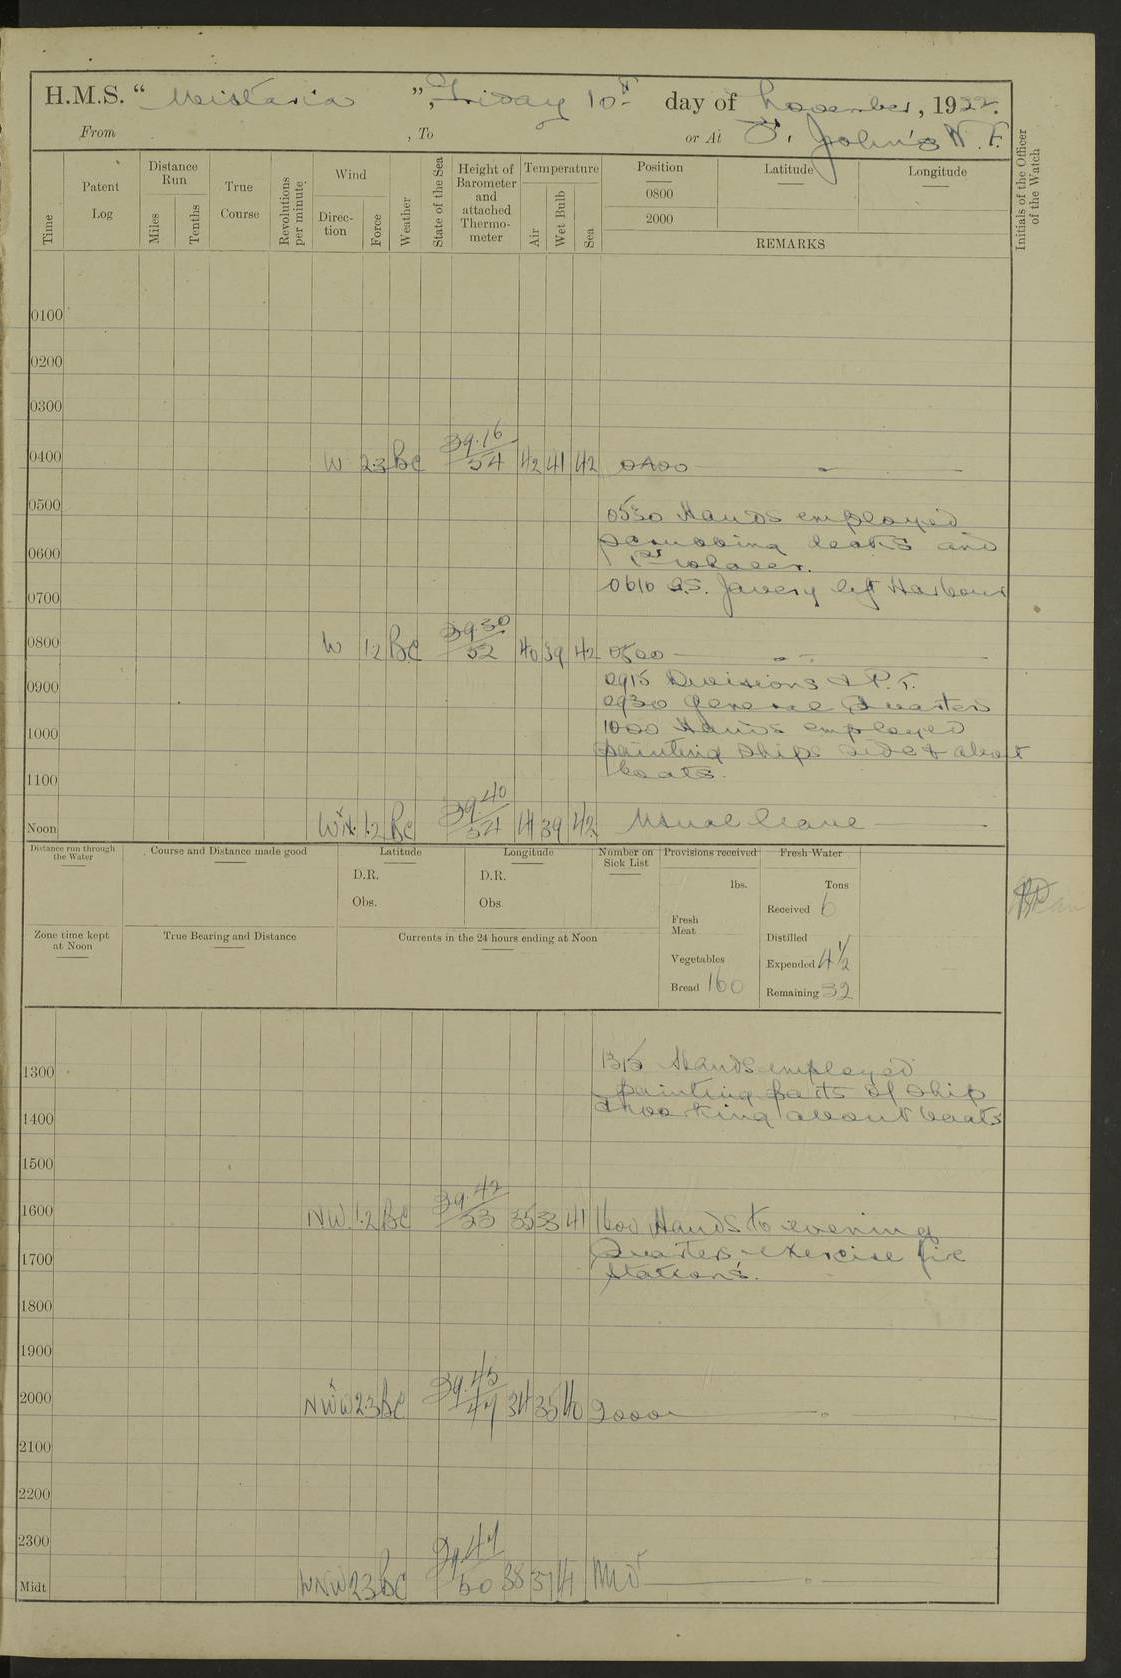 H.M.S. "Wistaria", Friday 10th day of November, 1922.
From , To or At St. John's N.F.
Time
Patent Log
Distance Run
Miles
Tenths
True Course
Revolutions per minute
Wind
Direction
Force
Weather
State of the Sea
Height of Barometer and attached Thermometer
Temperature
Air
Wet Bulb
Sea
Position
0800
2000
Latitude
Longitude
REMARKS
Initials of the Officer of the Watch
0100
0200
0300
0400 W 2.3 BC 29.16/54 42 41 42 0400
0500 0530 Hands employed
scrubbing decks and
0600
0610 S.S. left Harbour
0700
0800 W 1.2 BC 29.30/52 40 39 42 0800
0900 0915 Divisions & P.T.
0930 General Quarters
1000 1000 Hands employed
painting ships side & about
boats.
1100
Noon WxN. 1.2 BC 29.40/54 41 39 42 Usual leave
Distance run through the Water
Course and Distance made good
Latitude
D.R.
Obs.
Longitude
D.R.
Obs
Number on Sick List
Provisions received
lbs.
Fresh Meat
Vegetables
Bread 160
Fresh Water
Tons
Received 6
Distilled
Expended 4½
Remaining 32
Zone time kept at Noon
True Bearing and Distance
Currents in the 24 hours ending at Noon
1300 1315 Hands employed
painting parts of ship
& working about boats
1400
1500
1600 NW 1.2 BC 29.42/53 35 33 41 1600 Hands to evening
Quarters, exercise fire
stations.
1700
1800
1900
2000 NWxW 2.3 BC 29.45/47 34 35 40 2000
2100
2200
2300
Midt WNW 2.3 BC 29.47/50 38 37 41 Mid